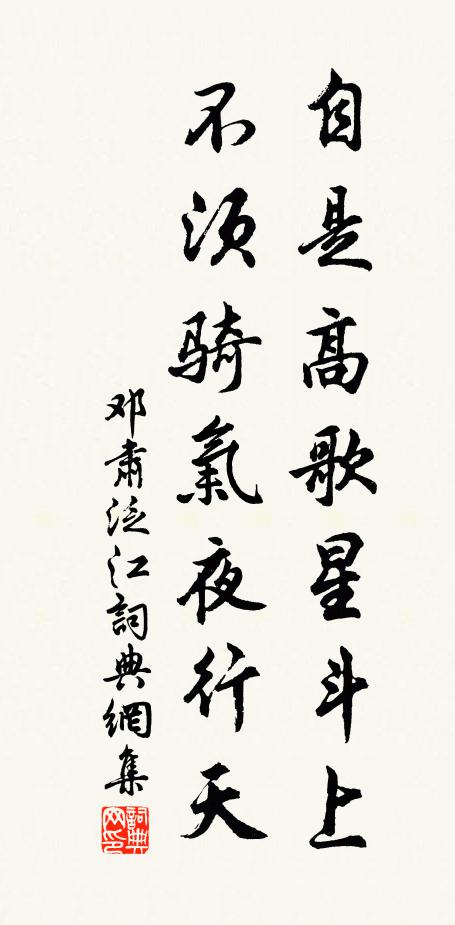 自是高歌星斗上
不须骑氣夜行天
邓肃泛江詞典網集
詞典网印